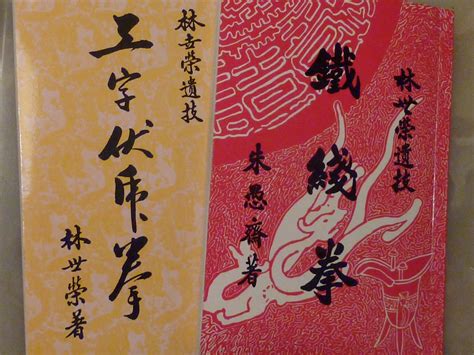 林世榮遺技
鐵綫拳
朱愚齋著
林世榮遺技
工字伏虎拳
林世榮著